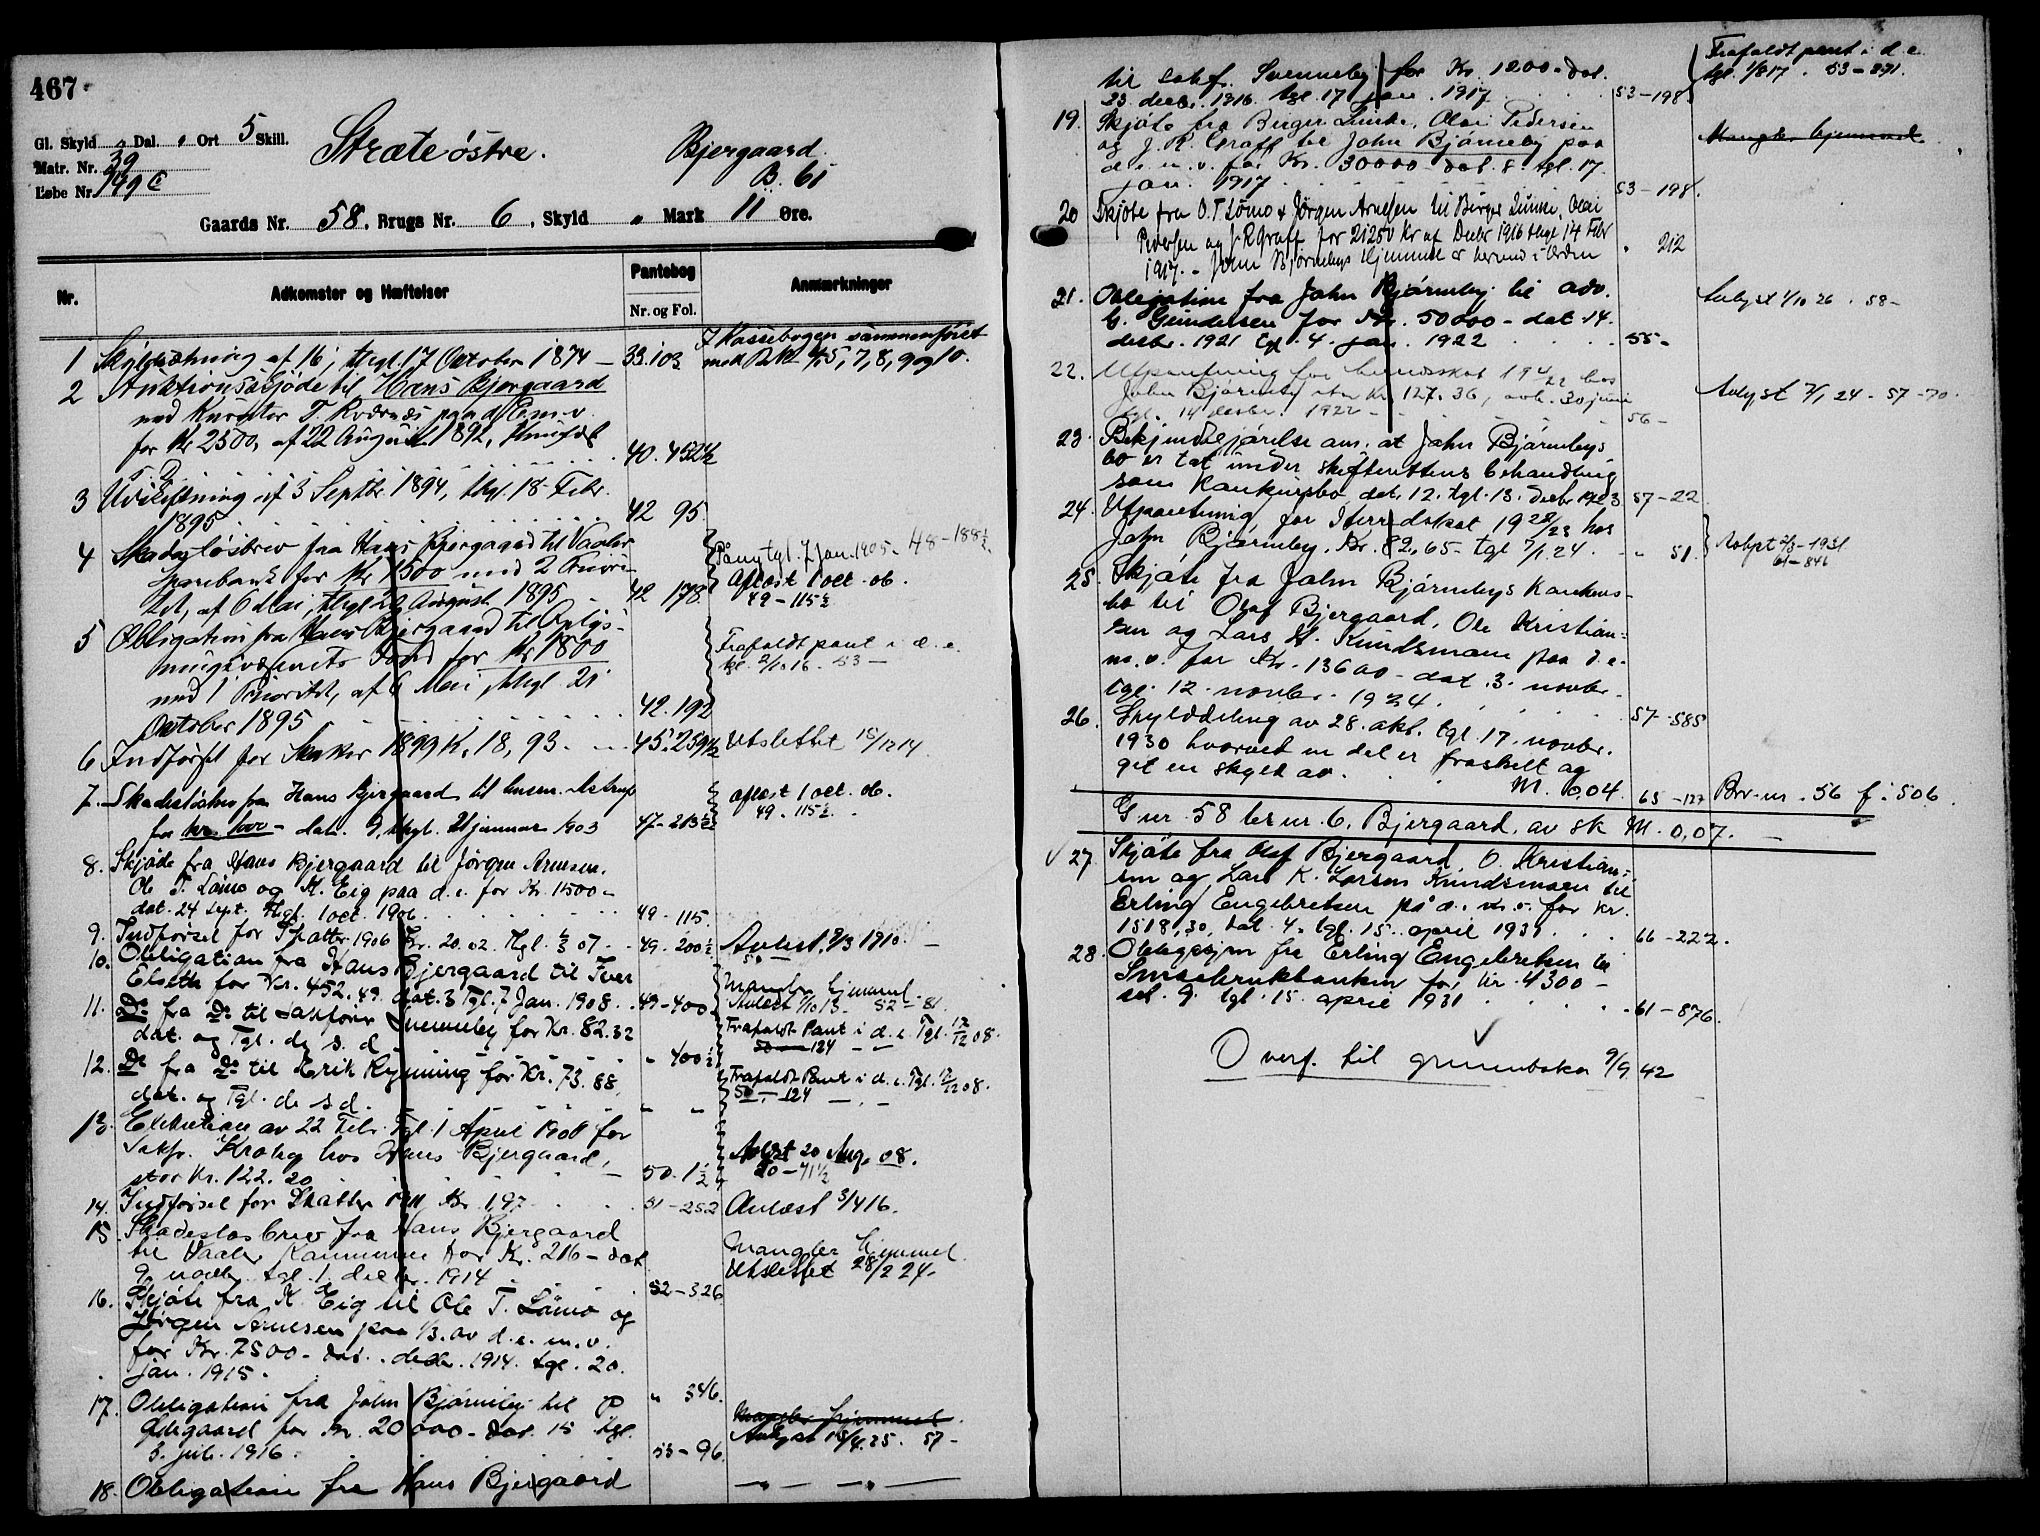 467
Gl. Skyld " Dal. " Ort 5 Skill.
Matr. Nr. 39
Løbe Nr. 149 c
Stræte østre.
Bjergaard
B. 61
Gaards Nr. 58, Brugs Nr. 6, Skyld " Mark 11 Øre.
Nr.
Adkomster og Hæftelser
Pantebog
Nr. og Fol.
Anmærkninger
1 Skyldsætning af 16, thgl. 17 October 1874 — 33.103
I Kassebogen sammenføiet
med B No 4, 5, 7, 8, 9 og 10.
2 Auktionsskjøde til Hans Bjergaard
med Kurator T. Kværnæs paa d. E. m. v.
for Kr 2500, af 22 August 1892, 40.452½
3 Udskiftning af 3 Septbr. 1894, thgl. 18 Febr.
1895 42 95
4 Skadesløsbrev fra Hans Bjergaard til Vaaler
Sparebank for Kr 1500 med 2 Priori-
tet, af 6 Mai, thgl 22 August 1895 - 42 178
tgl. 7 Jan. 1905. 48-188½
Aflæst 1 oct. 06.
49-115½
5 Obligation fra Hans Bjergaard til Oplys-
ningsvæsenets Fond for Kr 1800
med 1 Prioritet, af 6 Mai, thgl 21
October 1895 42.192
Frafaldt pant i d. e.
tgl. 2/10 16. 53 —
6 Indførsel for Skatter 1899 K. 18,93. 45.259½
Utslettet 15/12 14.
7. Skadesløsbrev fra Hans Bjergaard til Astrup
for Kr. 1000 - dat. 9, thgl. 21 januar 1903 47-213½
aflæst 1 oct. 06.
49. 115½.
8. Skjøde fra Hans Bjergaard til Jørgen Arnesen,
Ole T. Lømo og K. Eig paa d. e. for Kr. 11500 -
dat. 24 sept. thgl. 1 oct. 1906. 49-115.
9. Indførsel for Skatter 1906 Kr. 20.02. Thgl. 6/3 07. 49-200½
Avlæst 9/3 1910. —
10. Obligation fra Hans Bjergaard til Iver
Elseth for Kr. 452.49 dat. 3 Tgl. 7 Jan. 1908. 49-400
Mangler hjemmel
Avlæst 7/10 13. 52 - 81.
11. Do fra Do til Sakfører Svenneby for Kr. 82.32
dat. og Tgl. de s. d. " 400½
Frafaldt Pant i d. e. Tgl. 12/12 08.
50 — 124 — " —
12. Do fra Do til Erik Rynning for Kr. 73.88,
dat. og Tgl. de s d. " "
Frafaldt Pant i d. e. Tgl. 12/12 08.
50 — 124 — " —
13. Exekution av 22 Febr. Tgl. 1 April 1908 for
Sakfr. Kroby hos Hans Bjergaard,
stor Kr. 122.20 50.1½
Avlæst 20 Aug. 08.
50-71½
14. Indførsel for Skatter 1911 Kr. 1,97 51-252
Avlæst 3/4 16.
15. Skadesløsbrev fra Hans Bjergaard
til Vaaler Kommune for Kr. 216 - dat
9 novbr. tgl. 1 decbr. 1914 52-326
Mangler hjemmel
Utslettet 28/2 24.
16. Skjøte fra K. Eig til Ole T. Lømo og
Jørgen Arnesen paa 1/3 av d. e. m. v.
for Kr. 7500 - dat. decbr. 1914. tgl. 20.
jan. 1915. " 346.
17. Obligation fra John Bjørneby til P
Ødegaard for Kr. 20 000 - dat. 15 tgl.
3. juli. 1916. 53-96.
Mangler hjemmel.
Avlyst 15/4.25. 57-
18. Obligation fra Hans Bjergaard
— " — " —
til sakf. Svenneby for Kr. 1200 - dat.
23. decbr. 1916. tgl. 17 jan. 1917 53-198
Frafaldt pant i d. e.
tgl. 1/8 17. 53-391.
19. Skjøte fra Birger Linke, Olai Pedersen
og J. R. Graff til John Bjørneby paa
d. e. m. v. for Kr. 30000 - dat. 8. tgl. 17.
jan. 1917 53-198.
Mangler hjemmel
20 Skjøte fra O. T. Lømo & Jørgen Arnesen til Birger Linke, Olai
Pedersen og J. R. Graff for 21250 Kr af Decbr 1916 thgl 14 Febr
1917. - John Bjørnebys Hjemmel er herved i Orden " 212
21. Obligation fra John Bjørneby til adv.
G. Gundersen for Kr. 50 000 - dat. 14.
decbr. 1921 tgl. 4. jan. 1922 55-
Avlyst 1/10 26. 58-
22. Utpantning for herredsskat 1921/22 hos
John Bjørneby stor Kr. 127.36, avh. 30 juni
tgl. 14 decbr. 1922 - 56-
Avlyst 7/1 24 - 57-70.
23. Bekjendtgjørelse om at John Bjørnebys
bo er tat under skifterettens behandling
som konkursbo, dat. 12. tgl. 13. decbr 1923 57-22
24. Utpantning for Herredsskat 1922/23 hos
John Bjørneby. Kr. 82,65 - tgl 7/1 24. " 51.
Avlyst 2/3-1931
61-846
25. Skjøte fra John Bjørnebys konkurs-
bo til Olaf Bjergaard, Ole Kristian-
sen og Lars K. Kundsmoen paa d. e.
m. v. for Kr. 13600 - dat. 3. novbr.
tgl. 12. novbr. 1924. 57-585
26. Skylddeling av 28. okt. tgl. 17. novbr.
1930 hvorved en del er fraskilt og
git en skyld av. M. 0,04. 65-127
Brv. nr. 56 f. 506.
G. nr. 58 br. nr. 6. Bjergaard, av sk M. 0,07. —
27. Skjøte fra Olaf Bjergaard, O. Kristian-
sen og Lars K. Larsen Kundsmoen til
Erling Engebretsen på d. e. m. v. for kr.
15181,30, dat. 4. tgl. 15. april 1931 66-222.
28. Obligasjon fra Erling Engebretsen til
Småbrukbanken for kr. 4300 -
dat. 9. tgl. 15. april 1931 61-876.
Overf. til grunnboka 9/9 42